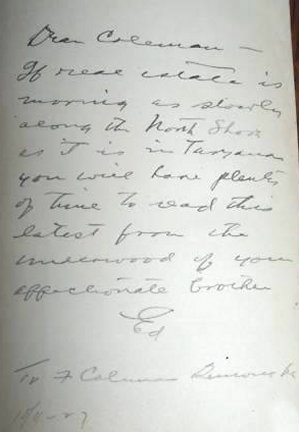 Dear Coleman —
If real estate is
moving as slowly
along the North Shore
as it is in Tarzana
you will have plenty
of time to read this
latest from the
underwood of your
affectionate brother
Ed
To F Coleman Burroughs